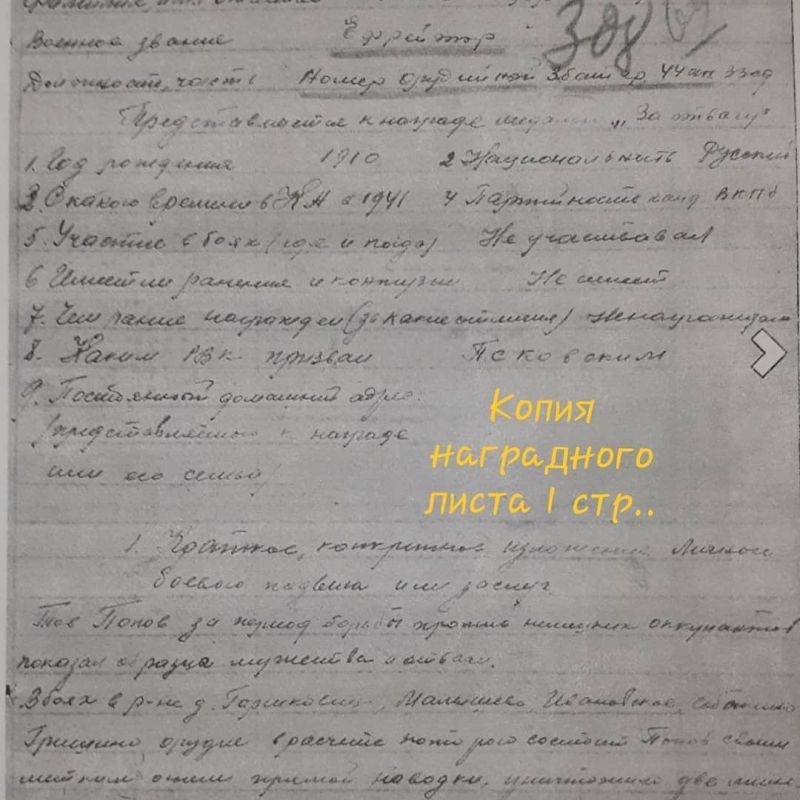 Фамилия, имя
Военное звание Ефрейтор 308
Должность, часть Номер орудийной 3батар 44ап 33сд
Представляется к награде медали „За отвагу"
1. Год рождения 1910 2 Национальность Русский
3. С какого времени в КА с 1941 4 Партийность канд ВКПб
5. Участие в боях (где и когда) Не участвовал
6 Имеет ли ранения и контузии Не имеет
7. Чем ранее награжден (за какие отличия) Ненагражден
8. Каким РВК призван Псковским
9. Постоянный домашний адрес:
/представляемого к награде
или его семьи/
Копия
наградного
листа 1 стр..
1. Краткое, конкретное изложение личного
боевого подвига или заслуг
Тов Попов за период борьбы против немецких оккупантов
показал образца мужества и отваги.
В боях в р-не д. Малышево, Ивановское,
Гришино орудие в расчете которого состоит Попов своим
метким огнем прямой наводки, уничтожило два